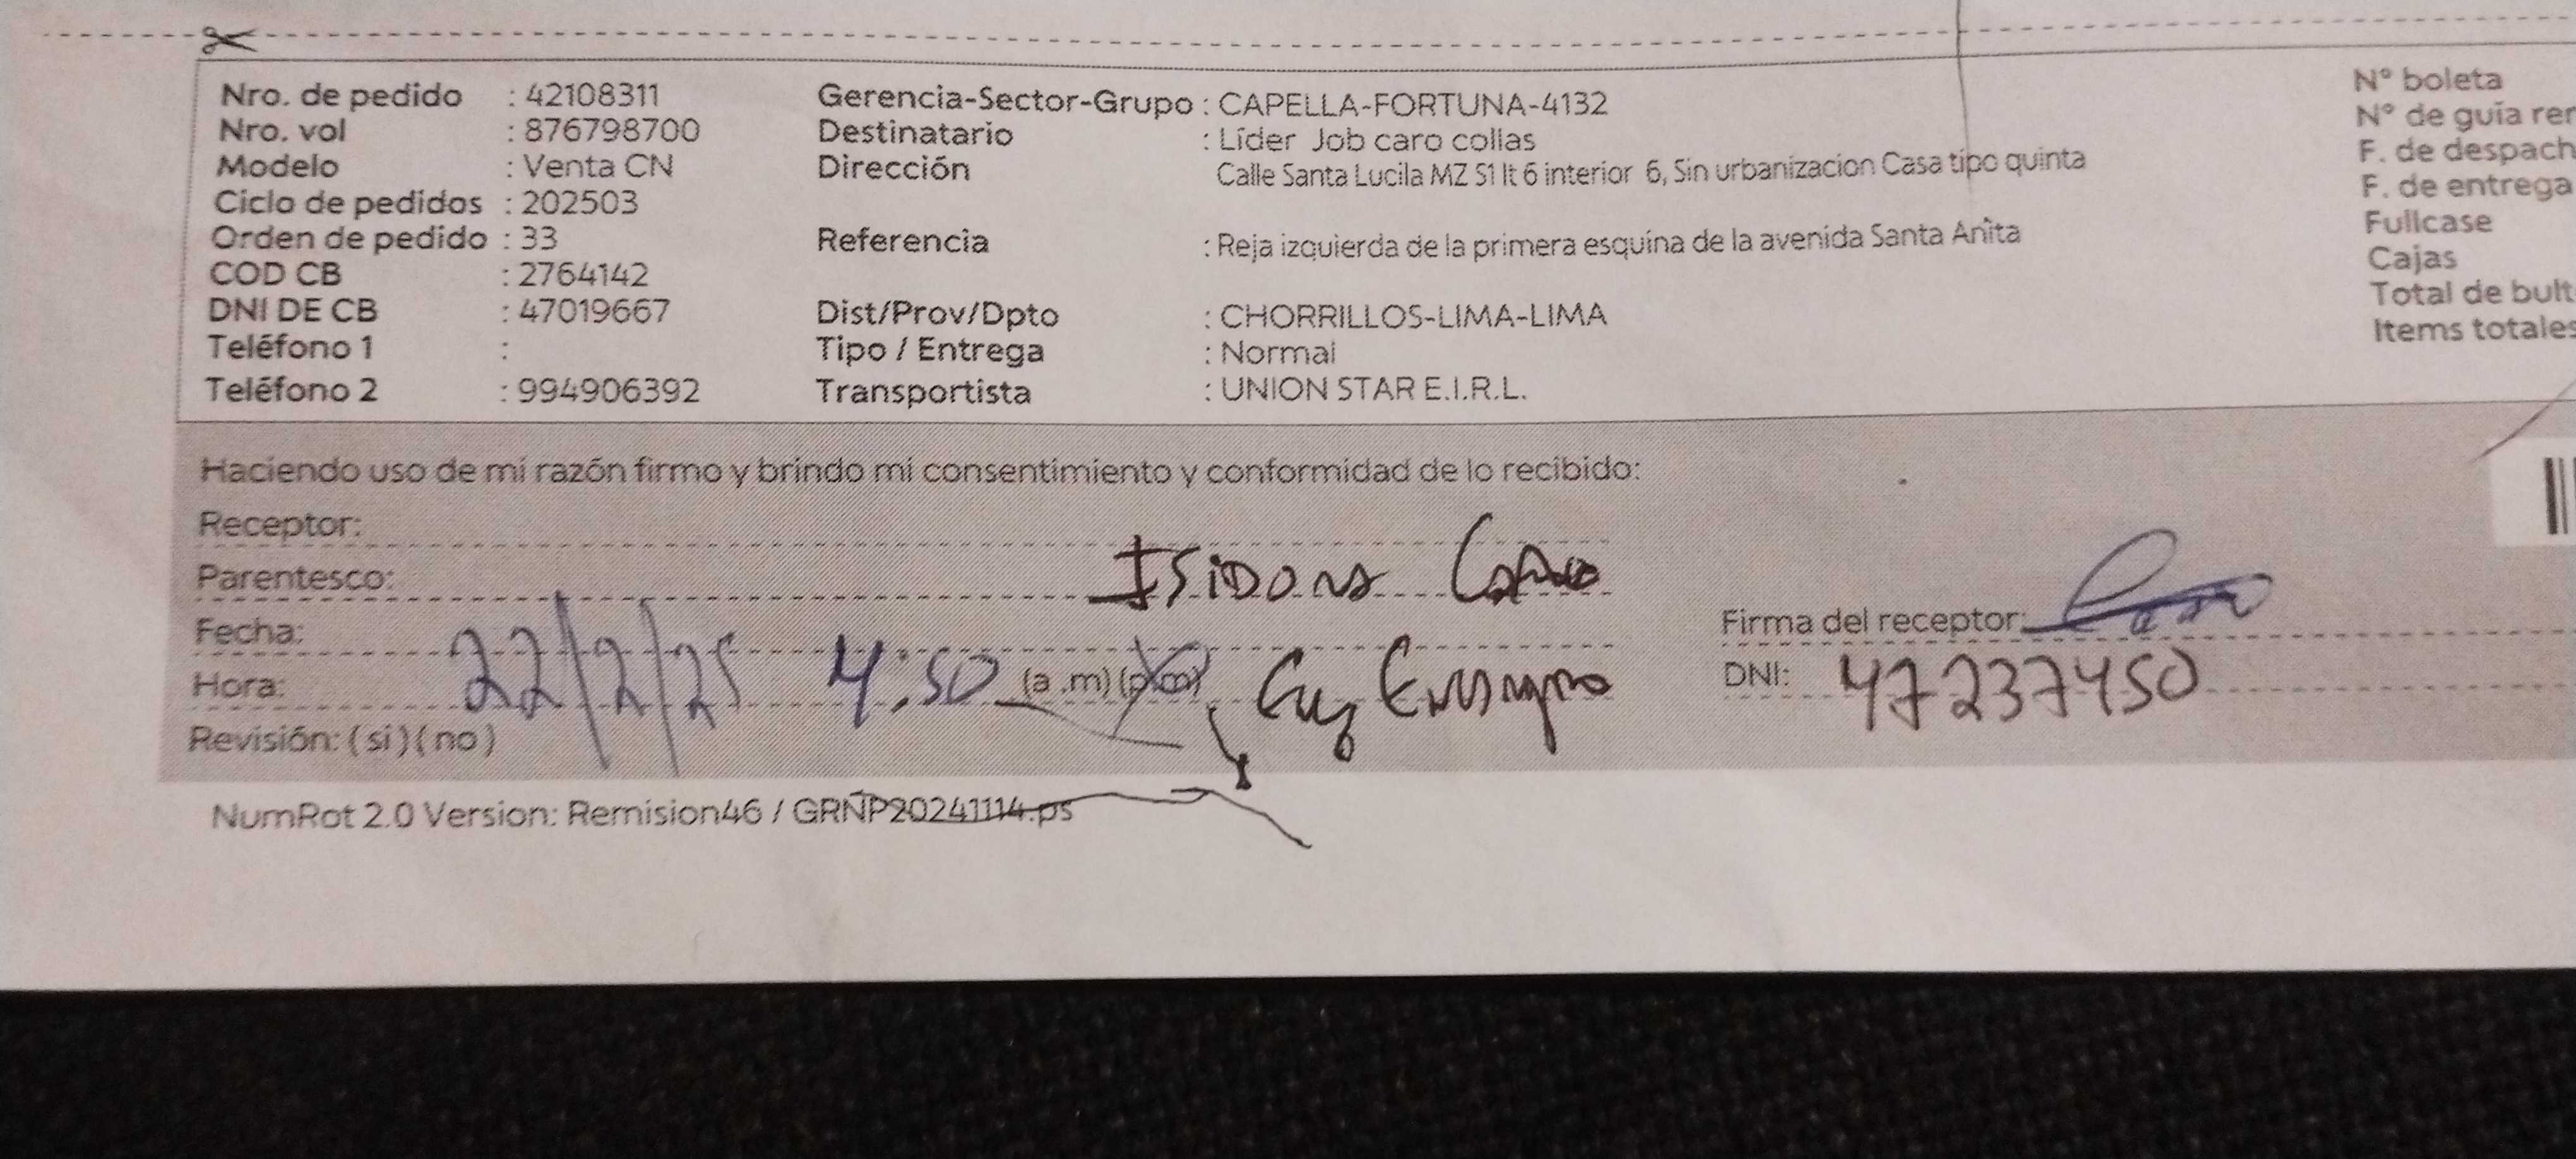 Nro. de pedido : 42108311
Nro. vol : 876798700
Modelo : Venta CN
Ciclo de pedidos : 202503
Orden de pedido : 33
COD CB : 2764142
DNI DE CB : 47019667
Teléfono 1 :
Teléfono 2 : 994906392
Gerencia-Sector-Grupo : CAPELLA-FORTUNA-4132
Destinatario : Líder Job caro collas
Dirección Calle Santa Lucila MZ S1 lt 6 interior 6, Sin urbanizacion Casa tipo quinta
Referencia : Reja izquierda de la primera esquina de la avenida Santa Anita
Dist/Prov/Dpto : CHORRILLOS-LIMA-LIMA
Tipo / Entrega : Normal
Transportista : UNION STAR E.I.R.L.
N° boleta
N° de guía
F. de
F. de entrega
Fullcase
Cajas
Total de
Items totales
Haciendo uso de mi razón firmo y brindo mi consentimiento y conformidad de lo recibido:
Receptor:
Parentesco: Isidora Caro
Fecha:
Hora: 22/2/25 4:50 (a .m) (p.m)
Revisión: ( si ) ( no )
Firma del receptor: Caro
DNI: 47237450
NumRot 2.0 Version: Remision46 / GRNP20241114.ps